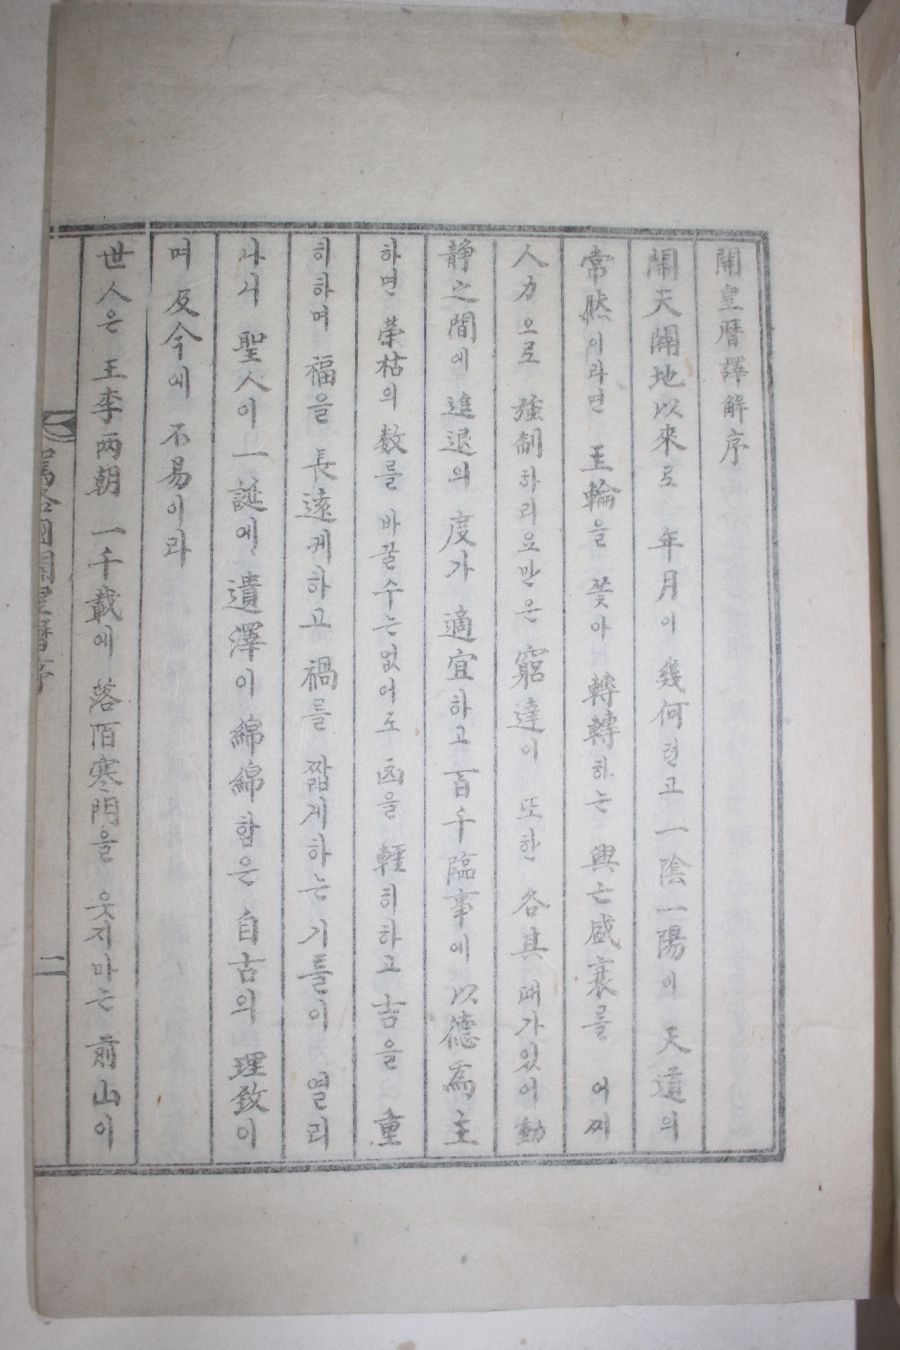 開皇曆譯解序
開天闢地以來로 年月이 幾何런고 一陰一陽이 天道의
常然이라면 王輪을 쫓아 轉轉하는 興亡盛衰를 어찌
人力으로 强制하리요만은 窮達이 또한 各其 때가있어 動
静之間에 進退의 度가 適宜하고 百千臨事에 以德爲主
하면 榮枯의 数를 바꿀수는없어도 凶을 軽히하고 吉을 重
히하며 福을 長遠게하고 禍를 짧게하는 기틀이 열리
나니 聖人이 一誕에 遺澤이 綿綿함은 自古의 理致이
며 反今에 不易이라
世人은 王李両朝 一千載에 落陌寒門을 웃지마는 前山이
駕洛國開皇曆序
二